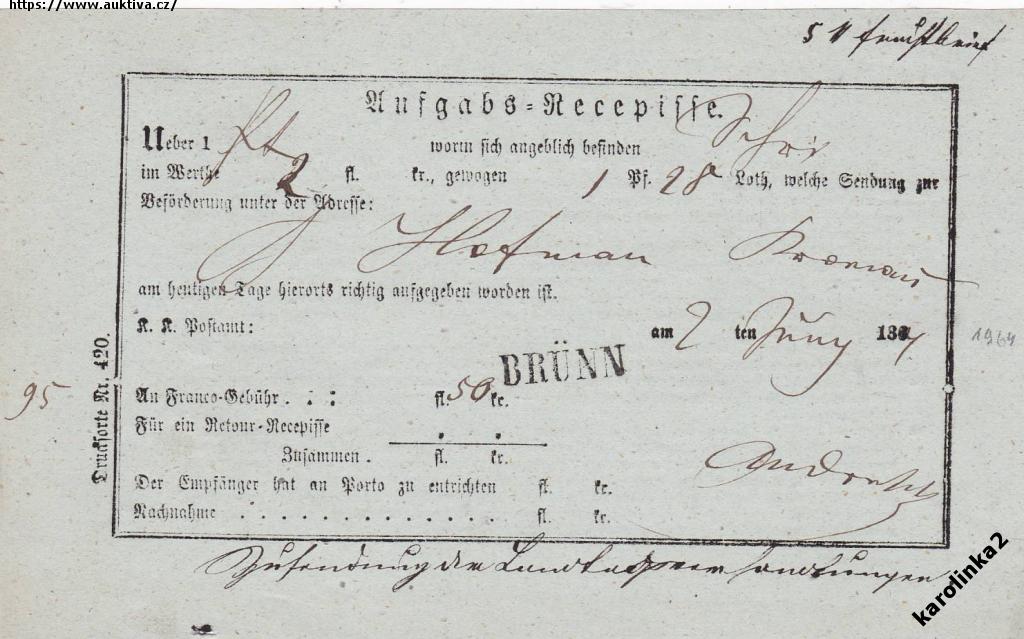 https://www.auktiva.cz/
5 11 frachtbrief
Aufgabs=Recepisse.
Ueber 1 worin sich angeblich befinden
im Werthe 2 fl. kr., gewogen 1 Pf. 28 Loth, welche Sendung zur
Beförderung unter der Adresse:
Hofman
am heutigen Tage hierorts richtig aufgegeben worden ist.
K. K. Postamt: am 2 ten Juny 18
1964
BRÜNN
95
Drucksorte Nr. 420.
An Franco-Gebühr . . : fl. 50 kr.
Für ein Retour-Recepisse . .
Zusammen . fl. kr.
Der Empfänger hat an Porto zu entrichten fl. kr.
Nachnahme . . . . . . . . . . . . . fl. kr.
Zusendung der Landtagsverhandlungen
karolinka2